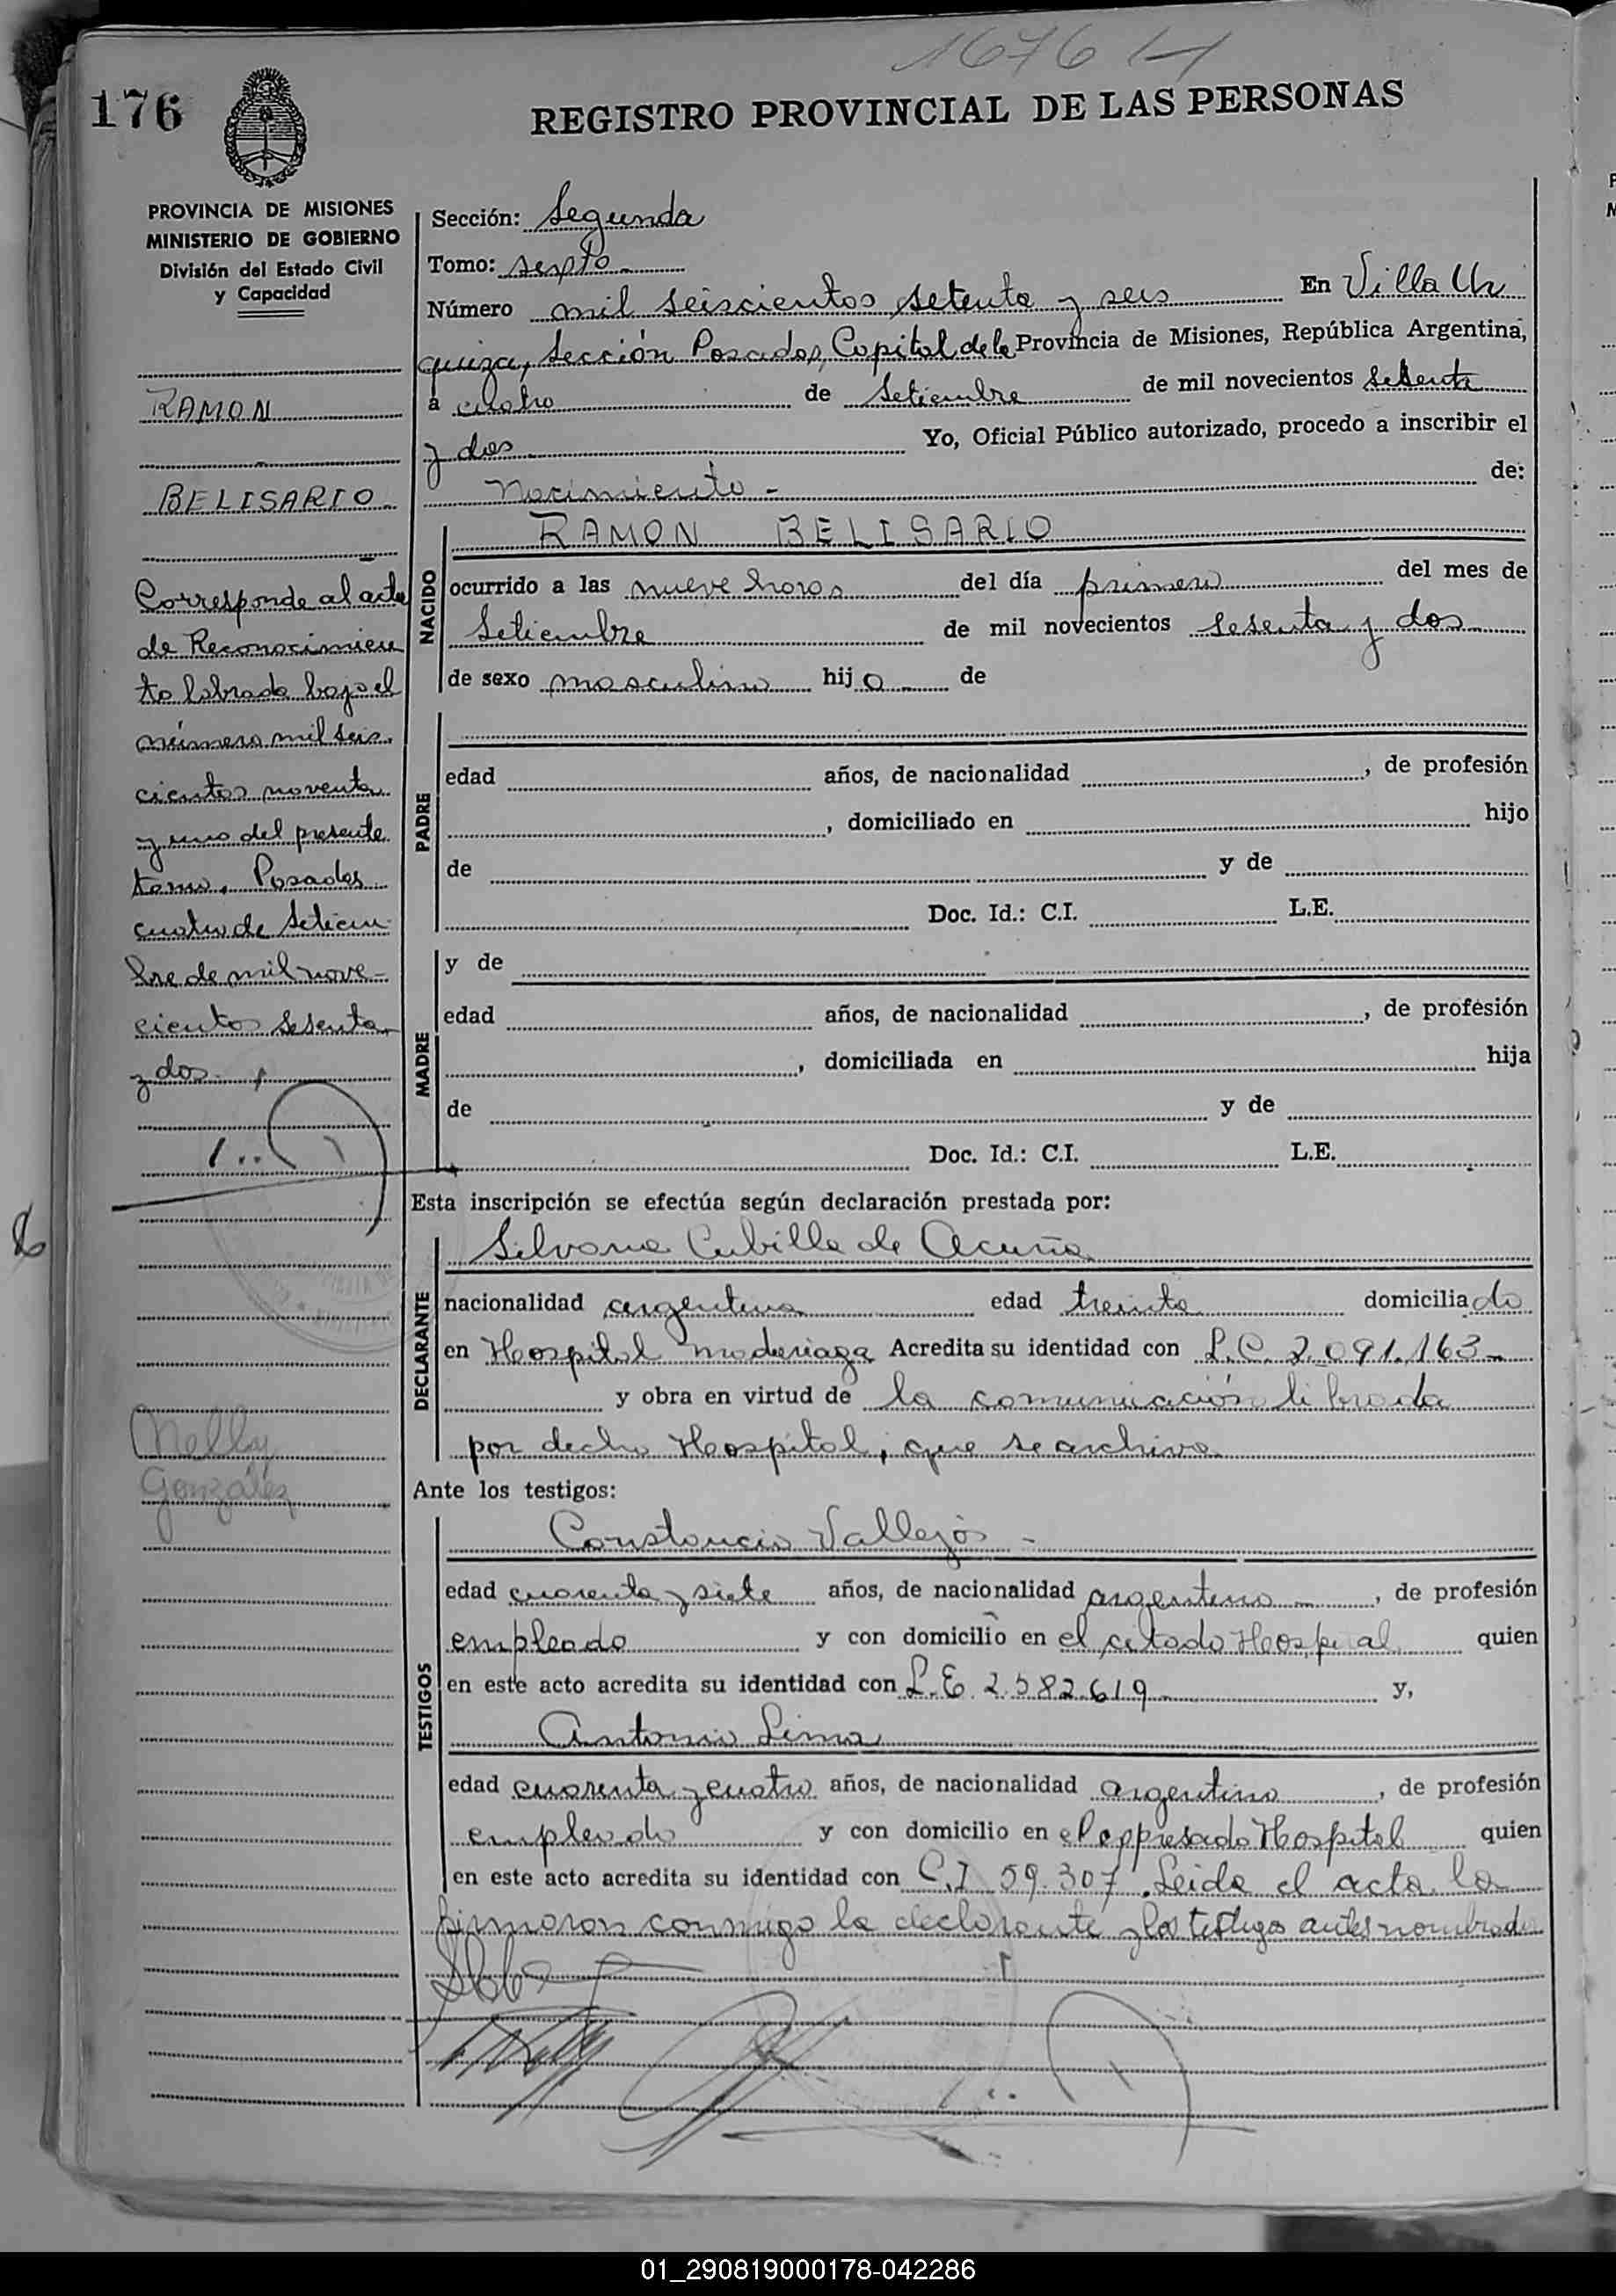 1676
176
REGISTRO PROVINCIAL DE LAS PERSONAS
PROVINCIA DE MISIONES
MINISTERIO DE GOBIERNO
División del Estado Civil
y Capacidad
RAMON
BELISARIO
Corresponde al acta
de Reconocimien
to labrado bajo el
número mil seis
cientos noventa
y uno del presente
tomo. Posadas
cuatro de Setiem
bre de mil nove
cientos sesenta
y dos.
Nelly
González
Sección: Segunda
Tomo: sexto
Número mil seiscientos setenta y seis En Villa Ur
quiza, Sección Posadas, Capital de la Provincia de Misiones, República Argentina,
a cuatro de Setiembre de mil novecientos sesenta
y dos Yo, Oficial Público autorizado, procedo a inscribir el
Nacimiento - de:
NACIDO
RAMON BELISARIO
ocurrido a las nueve horas del día primero del mes de
Setiembre de mil novecientos sesenta y dos
de sexo masculino hijo de
PADRE
edad años, de nacionalidad , de profesión
, domiciliado en hijo
de y de
Doc. Id.: C.I. L.E.
MADRE
y de
edad años, de nacionalidad , de profesión
, domiciliada en hija
de y de
Doc. Id.: C.I. L.E.
Esta inscripción se efectúa según declaración prestada por:
DECLARANTE
Silvana Cubilla de Acuña
nacionalidad argentina edad treinta domiciliado
en Hospital Madariaga Acredita su identidad con L.C. 2.091.163
y obra en virtud de la comunicación librada
por dicho Hospital, que se archiva
Ante los testigos:
TESTIGOS
Constancio Vallejos -
edad cuarenta y siete años, de nacionalidad argentino , de profesión
empleado y con domicilio en el citado Hospital quien
en este acto acredita su identidad con L.E. 2.582.619 y,
Antonio Lima
edad cuarenta y cuatro años, de nacionalidad argentino , de profesión
empleado y con domicilio en el expresado Hospital quien
en este acto acredita su identidad con C.I 59.307. Leida el acta la
firmaron conmigo la declarante y los testigos antes nombrados
01_290819000178-042286